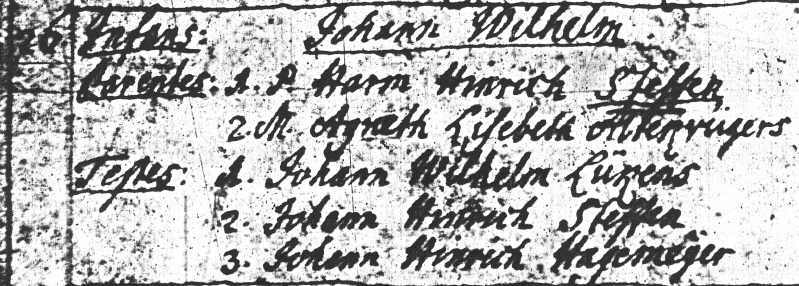 26 Infans: Johann Wilhelm
Parentes: 1. P. Harm Hinrich Steffen
2. M. Agneth Lisebeth Altenrügers
Testes: 1. Johann Wilhelm Lüzens
2. Johann Hinrich Steffen
3. Johann Hinrich Hagemeÿer